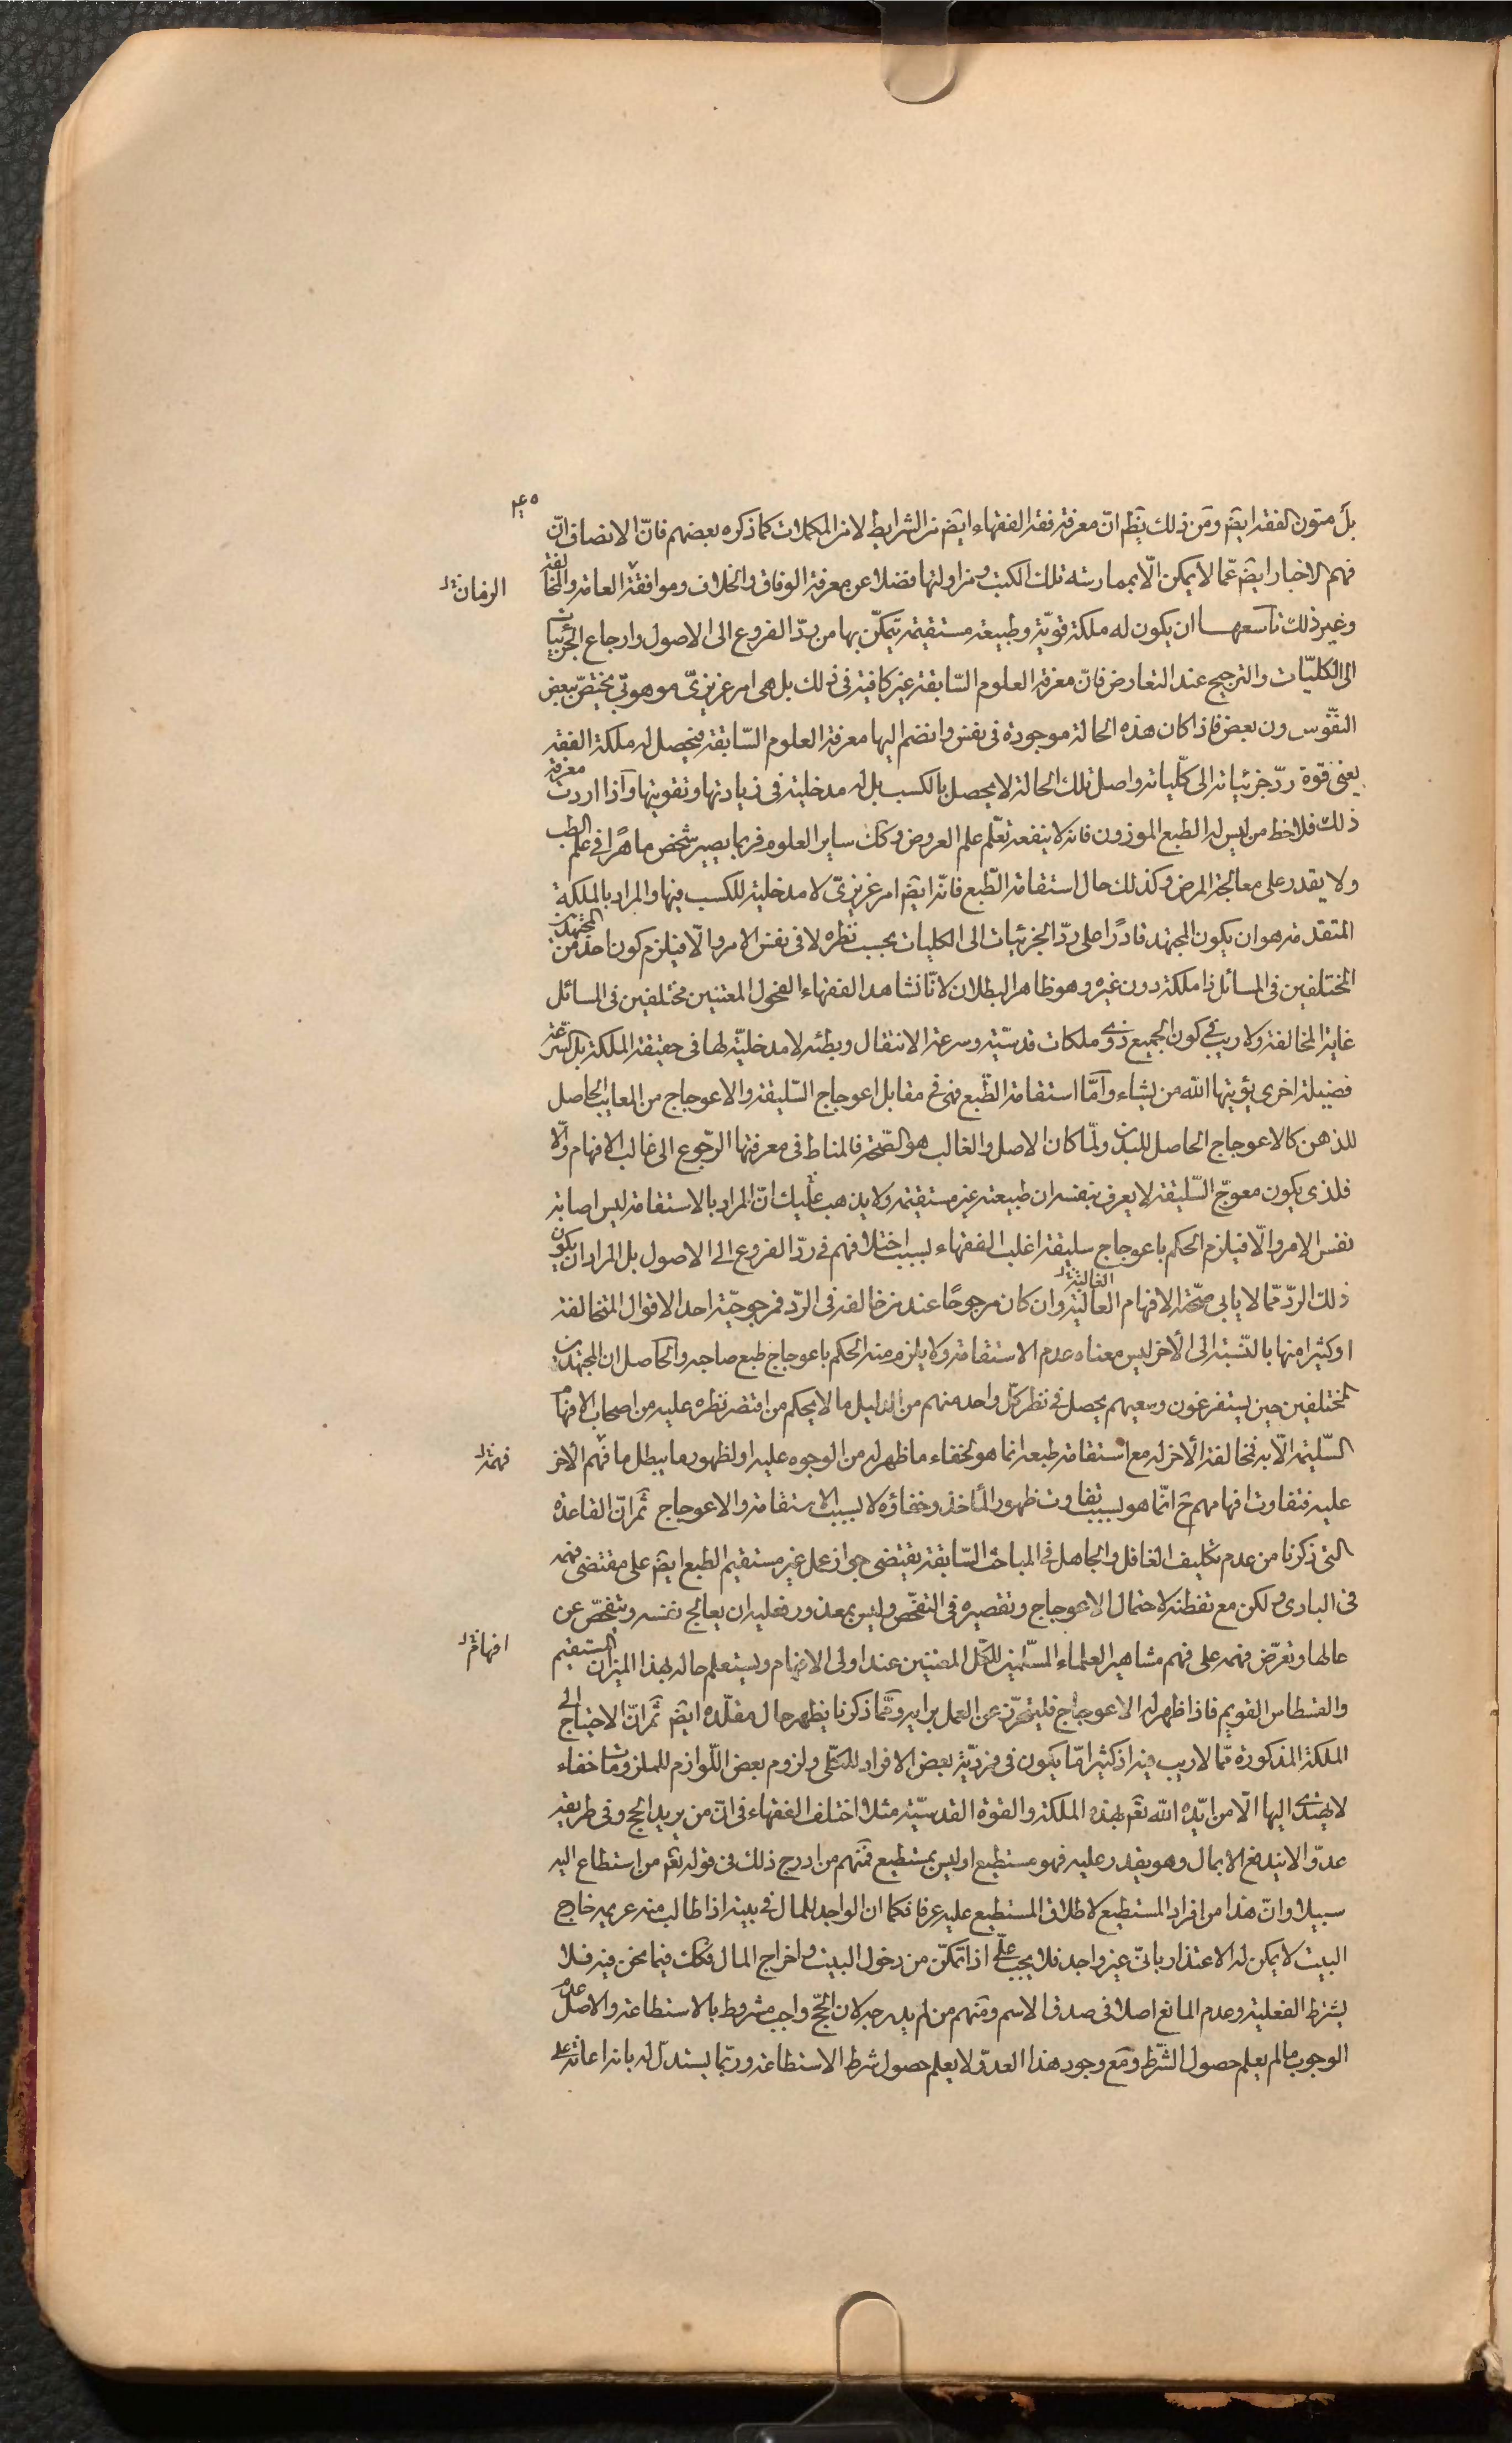 ٤٥
بل متون الفقه ايضم ومن ذلك يظهر انّ معرفة فقه الفقهاء ايضم من الشرايط لا من المكملات كما ذكره بعضهم فانّ الانصاف انّ
فهم الاخبار ايضم عمّا لا يمكن الّا بممارسة تلك الكتب ومزاولتها فضلا عن معرفة الوفاق والخلاف وموافقة العامة والمخالفة
الزمانة
وغير ذلك تاسعهـا ان يكون له ملكة قويّة وطبيعة مستقيمة يتمكّن بها من ردّ الفروع الى الاصول وارجاع الجزئيات
الى الكليّات والترجيح عند التعارض فانّ معرفة العلوم السّابقة غير كافية فى ذلك بل هى امر غريزىّ موهوبّى يختصّ ببعض
النفّوس دون بعض فاذا كان هذه الحالة موجودة فى نفس وانضم اليها معرفة العلوم السّابقة فيحصل له ملكة الفقه
يعنى قوة ردّ جزئياته الى كلّياته واصل تلك الحالة لا يحصل بالكسب بل له مدخلية فى زيادتها وتقويتها وآذا اردت معرفة
ذلك فلاحظ من ليس له الطبع الموزون فانه لا ينفعه تعّلم علم العروض وكك ساير العلوم فربما يصير شخص ماهرًا فى علم الطب
ولا يقدر على معالجة المرض وكذلك حال استقامة الطّبع فانّه ايضم امر غريزىّ لا مدخلية للكسب فيها والمراد بالملكة
المتقدمة هو ان يكون المجتهد قادرًا على ردّ الجزئيات الى الكليات بحسب نظره لا فى نفس الامر والّا فيلزم كون احد من المجتهدين
المختلفين فى المسائل ذا ملكة دون غيره وهو ظاهر البطلان لانّا نشاهد الفقهاء الفحول المعتنين مختلفين فى المسائل
غاية المخالفة ولا ريب فى كون الجميع ذوى ملكات قدسّية وسرعة الانتقال وبطئه لا مدخليّة لها فى حقيقة الملكة بل السّرعة
فضيلة اخرى يؤيتها الله من يشاء وآمّا استقامة الطّبع فهى فى مقابل اعوجاج السّليقة والاعوجاج من المعايب الحاصل
للذهن كالاعوجاج الحاصل للبدن ولمّا كان الاصل والغالب هو الصّحة فالمناط فى معرفتها الرّجوع الى غالب الافهام والّا
فلذى يكون معوجّ السّليقة لا يعرف بنفسه ان طبيعته غير مستقيمة ولا يذهب عليك انّ المراد بالاستقامة ليس اصابة
نفس الامر والّا فيلزم الحكم باعوجاج سليقة اغلب الفقهاء بسبب اختلافهم فى ردّ الفروع الى الاصول بل المراد ان يكون
ذلك الردّ ممّا لا يابى صحّته الافهام العالية وان كان مرجوحًا عند من خالفه فى الردّ فمرجوحيّة احد الاقوال المتخالفة
الغالبة
او كثيرا منها بالنّسبة الى الأخر ليس معناه عدم الاستقامة ولا يلزم منه الحكم باعوجاج طبع صاحبه والحآصل ان المجتهدين
المختلفين حين يستفرغون وسعيهم يحصل فى نظر كلّ واحد منهم من الدليل ما لا يحكم من اقتصر نظره عليه من اصحاب الافهام
السّليمة الّا به فمخالفة الأخر له مع استقامة طبعه انما هو لخفاء ما ظهر له من الوجوه عليه او لظهور ما يبطل ما فهم الأخر
فهمه
عليه فتفاوت افهامهم ح انّما هو بسبب تفاوت ظهور المأخذ وخفاؤه لا بسبب الاستقامة والاعوجاج ثمّ انّ القاعدة
التى ذكرنا من عدم تكليف الغافل والجاهل فى المباحث السّابقة يقتضى جواز عمل غير مستقيم الطبع ايضم على مقتضى فهمه
فى البادى ولكن مع تفطنه لاحتمال الاعوجاج وتقصيره فى التفحّص وليس بمعذور فعليه ان يعالج نفسه ويتفحّص عن
حالها ويعرّض فهمه على فهم مشاهير العلماء المسّلمين للكّل المعتنين عند اولى الافهام ويستعلم حاله بهذا الميزان المستقيم
افهام
والقسطاس القويم فاذا ظهر له الاعوجاج فليتحرّز عن العمل برايه وممّا ذكرنا يظهر حال مقلّده ايضم ثمّ انّ الاحتياج الى
الملكة المذكورة ممّا لا ريب فيه اذ كثيرا مّا يكون فى فرديّة بعض الافراد للكلّى ولزوم بعض اللّوازم للملزومات خفاء
لا يهتدى اليها الّا من ايّده الله تعم بهذه الملكة والقوة القدسيّة مثلا اختلف الفقهاء فى انّ من يريد الحج وفى طريقه
عدوّ لا يندفع الا بمال وهو يقدر عليه فهو مستطيع او ليس بمستطيع فمنهم من ادرج ذلك فى قوله تعم من استطاع اليه
سبيلا وانّ هذا من افراد المستطيع لاطلاق المستطيع عليه عرفا فكما ان الواجد للمال فى بيته اذا طالب منه غريمه خارج
البيت لا يمكن له الاعتذار بانّى غير واجد فلا يجب علّى اذا تمكّن من دخول البيت واخراج المال فكك فيما نحن فيه فلا
يشترط الفعلية وعدم المانع اصلا فى صدق الاسم ومنهم من لم يدرجه لان الحجّ واجب مشروط بالاستطاعة والاصل عدم
الوجوب ما لم يعلم حصول الشّرط ومع وجود هذا العدوّ لا يعلم حصول شرط الاستطاعة وربّما يستدلّ له بانه اعانة على